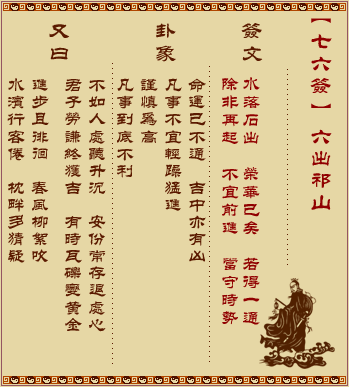 【七六簽】 六出祁山
簽文
水落石出 榮華已矣 若得一通
除非再起 不宜前進 當守時勢
卦象
命運已不通 吉中亦有凶
凡事不宜輕躁猛進
謹慎爲高
凡事到底不利
又曰
不如人處聽升沉 安份常存退處心
君子勞謙終獲吉 有時瓦礫變黃金
進步且徘徊 春風柳絮吹
水濱行客倦 枕畔多猜疑